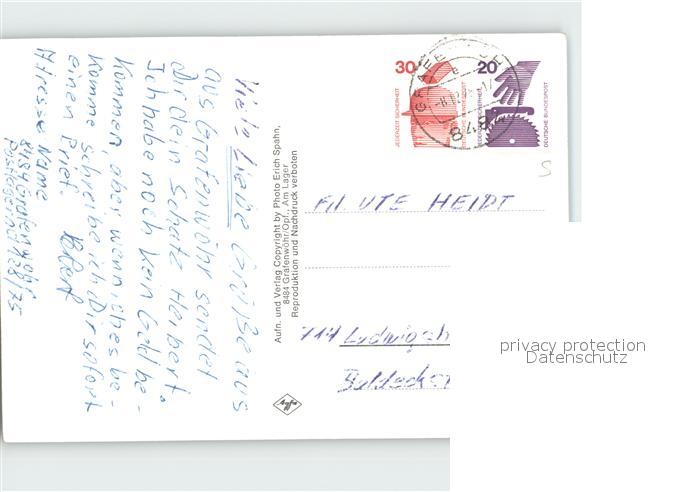 Viele liebe Grüße aus
aus Grafenwöhr sendet
Dir Dein Schatz Herbert.
Ich habe noch kein Geld be-
kommen, aber wenn ich es be-
komme schreibe ich Dir sofort
einen Brief.
Adresse Name
8484 Grafenwöhr
Aufn. und Verlag Copyright by Photo Erich Spahn,
8484 Grafenwöhr/Opf., Am Lager
Reproduktion und Nachdruck verboten
30
JEDERZEIT SICHERHEIT
DEUTSCHE BUNDESPOST
20
JEDERZEIT SICHERHEIT
DEUTSCHE BUNDESPOST
8484
Frl. UTE HEIDT
714 Ludwigsb
Agfa
privacy protection
Datenschutz